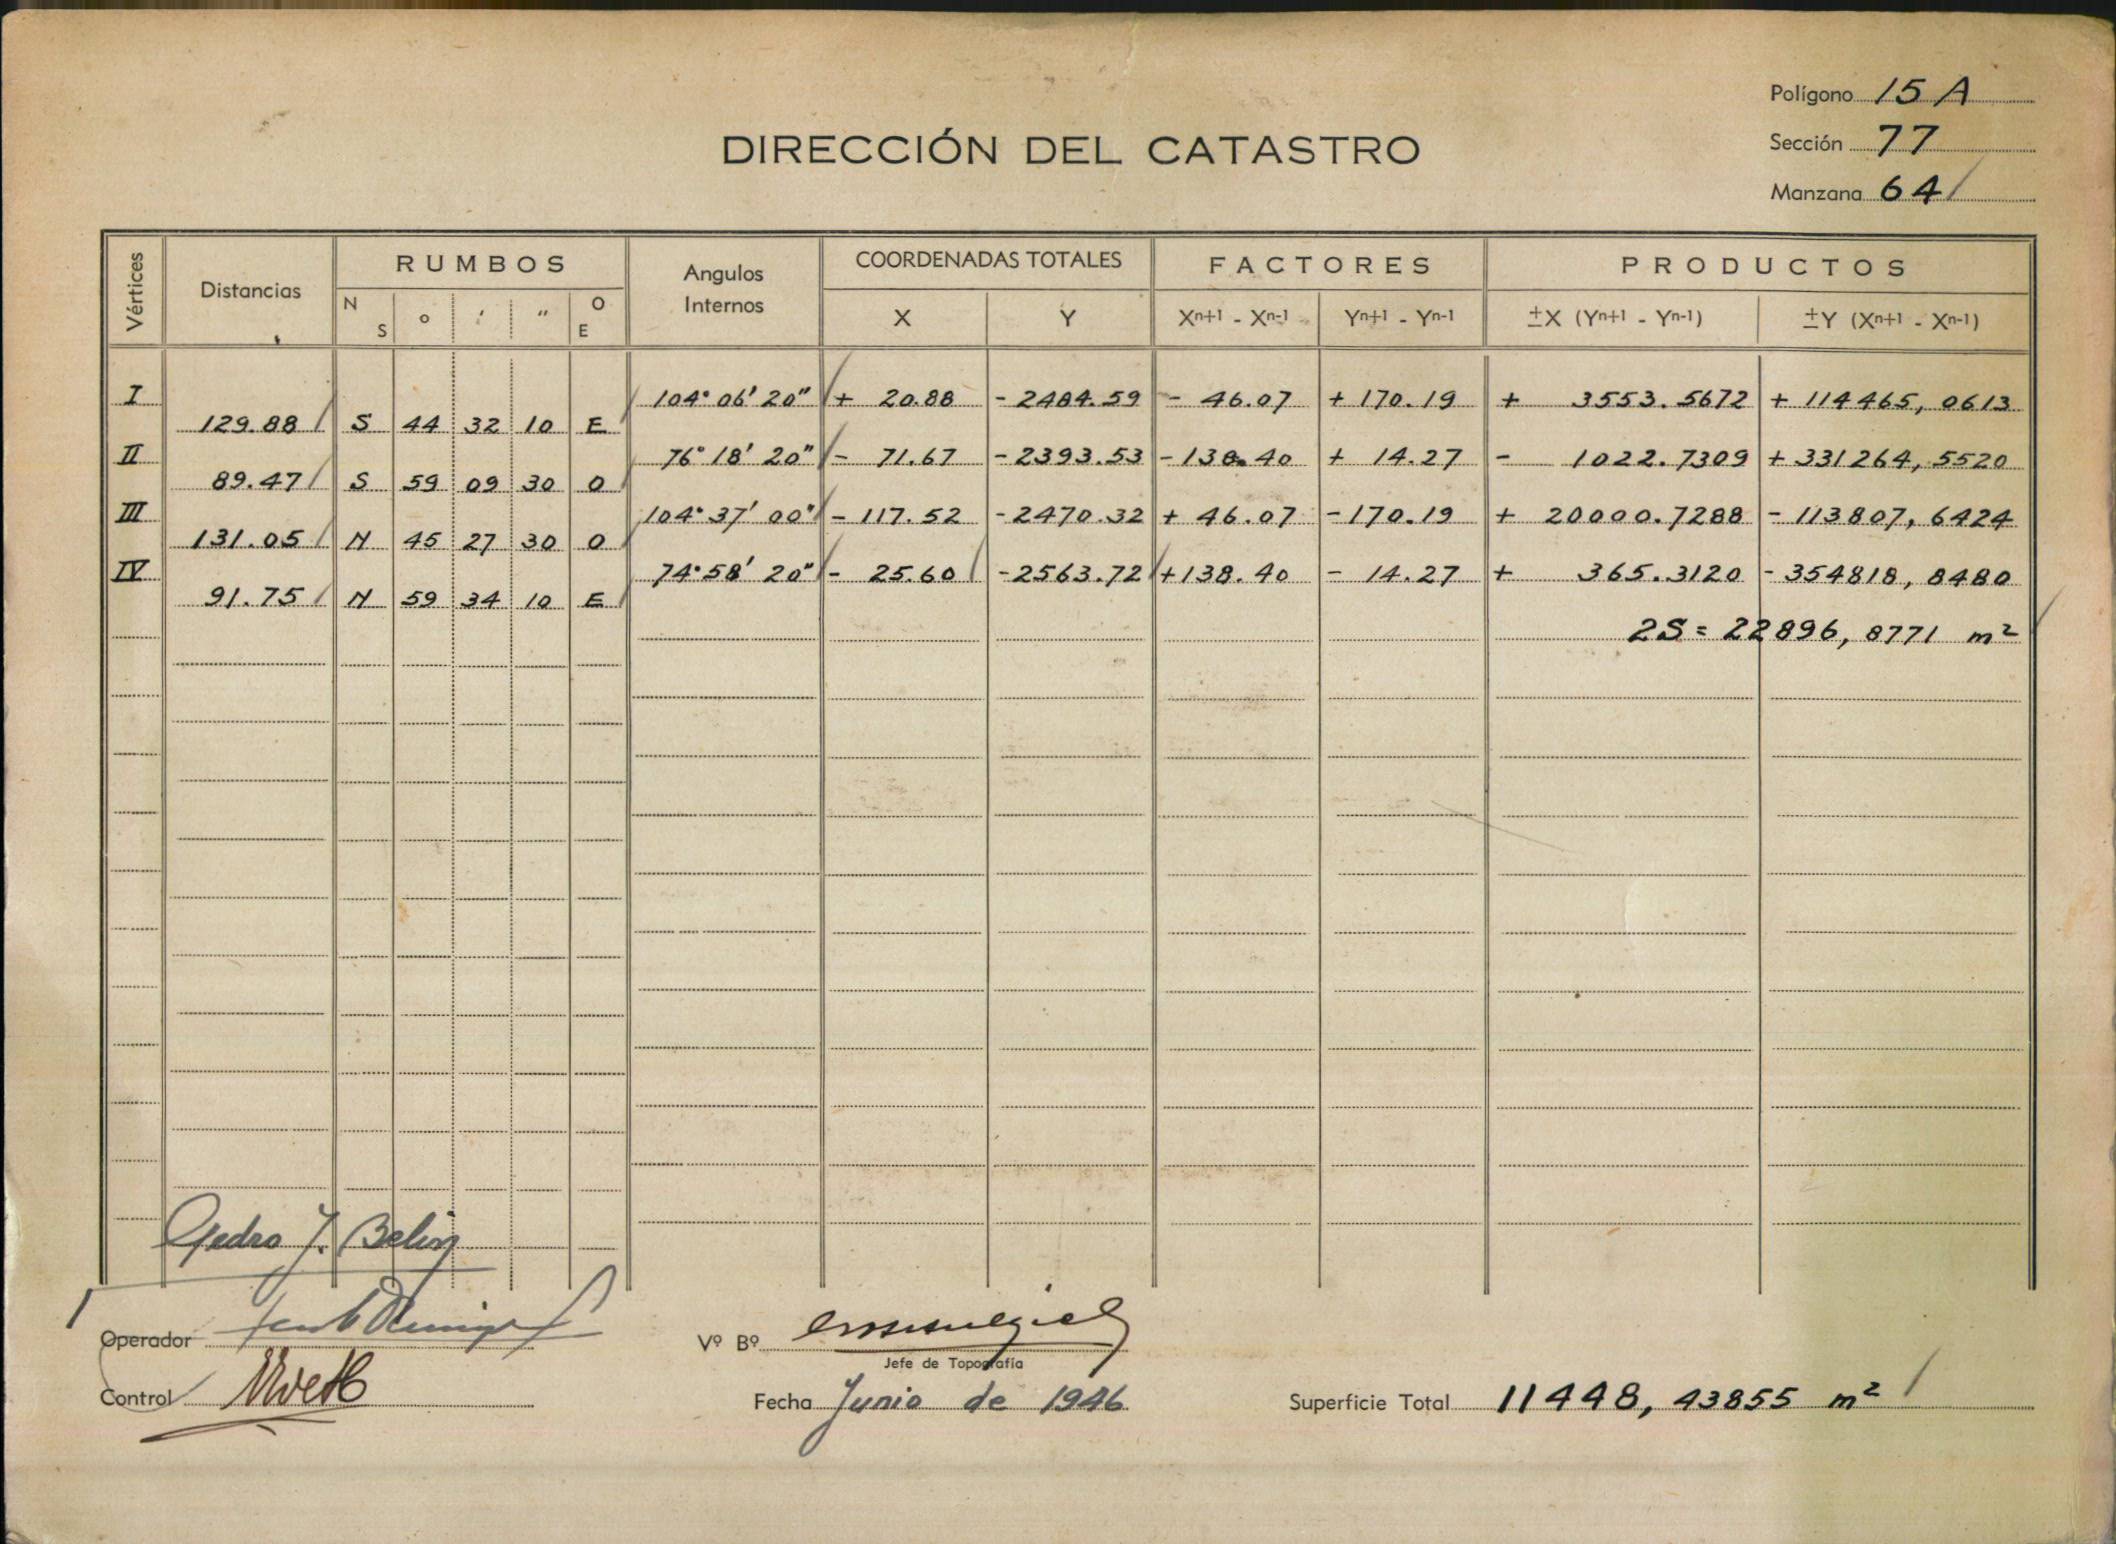 Polígono 15 A
DIRECCIÓN DEL CATASTRO
Sección 77
Manzana 64
Vértices Distancias RUMBOS Angulos Internos COORDENADAS TOTALES FACTORES PRODUCTOS
N S ° ' " O E X Y Xn+1 - Xn-1 Yn+1 - Yn-1 ±X (Yn+1 - Yn-1) ±Y (Xn+1 - Xn-1)
I 104° 06' 20" + 20.88 - 2484.59 - 46.07 + 170.19 + 3553.5672 + 114465,0613
129.88 S 44 32 10 E
II 76° 18' 20" - 71.67 - 2393.53 - 138.40 + 14.27 - 1022.7309 + 331264,5520
89.47 S 59 09 30 O
III 104° 37' 00" - 117.52 - 2470.32 + 46.07 - 170.19 + 20000.7288 - 113807,6424
131.05 N 45 27 30 O
IV 74° 58' 20" - 25.60 - 2563.72 + 138.40 - 14.27 + 365.3120 - 354818,8480
91.75 N 59 34 10 E
2S = 22896,8771 m²
Pedro J. Belin
Operador
Vº Bº
Jefe de Topografía
Control
Fecha Junio de 1946
Superficie Total 11448,43855 m²